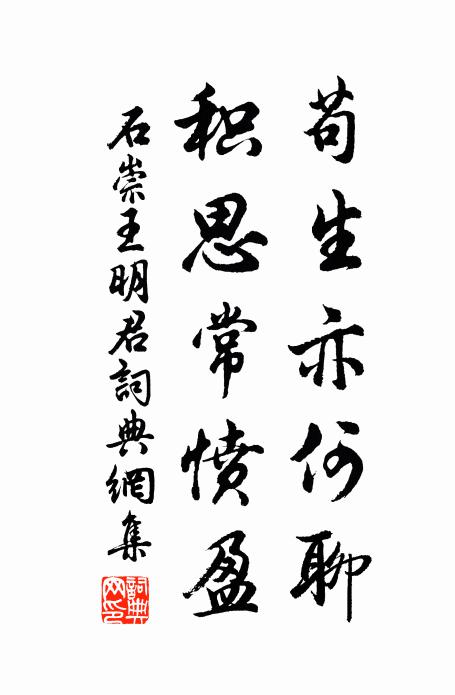 苟生亦何聊
积思常愤盈
石崇王明君詞典網集
詞典网印